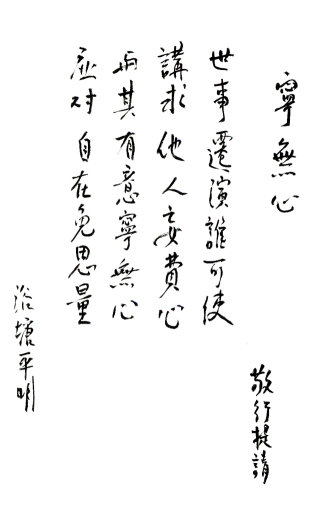 寧無心
世事遷演誰可使
講求他人妄費心
与其有意寧無心
应对自在免思量
浴塘平明
敬行提請